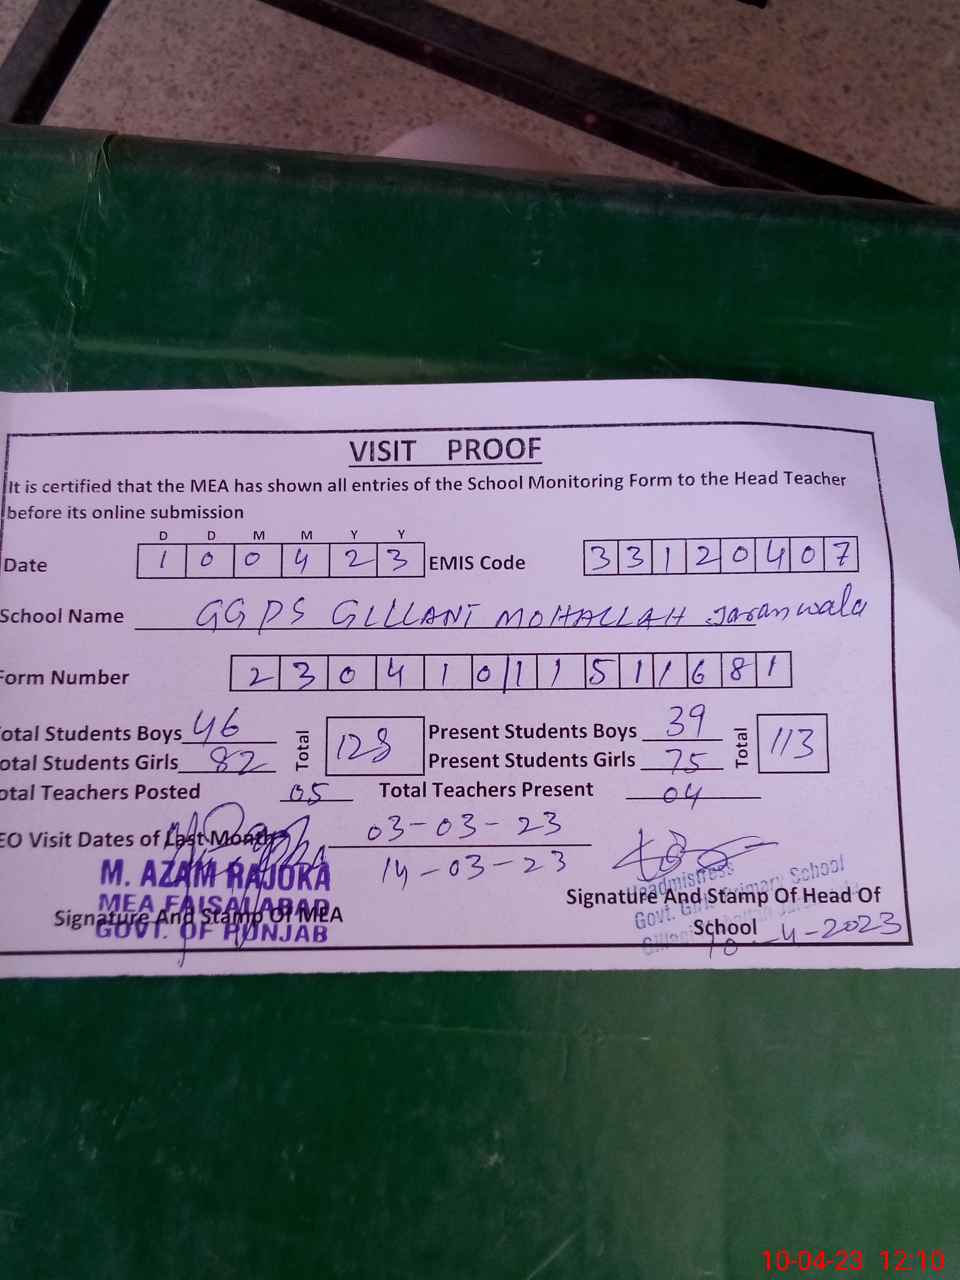 VISIT PROOF
It is certified that the MEA has shown all entries of the School Monitoring Form to the Head Teacher
before its online submission
D D M M Y Y
Date 1 0 0 4 2 3 EMIS Code 3 3 1 2 0 4 0 7
School Name GGPS GILLANI MOHALLAH Jaranwala
Form Number 2 3 0 4 1 0 1 1 5 1 1 6 8 1
otal Students Boys 46 Total 128 Present Students Boys 39 Total 113
otal Students Girls 82 Present Students Girls 75
otal Teachers Posted 05 Total Teachers Present 04
EO Visit Dates of Last Month 03-03-23
14-03-23
M. AZAM RAJOKA
MEA FAISALABAD
GOVT. OF PUNJAB
Signature And Stamp Of MEA
Headmistress
Govt. Girls Primary School
Signature And Stamp Of Head Of
School 10-4-2023
10-04-23 12:10